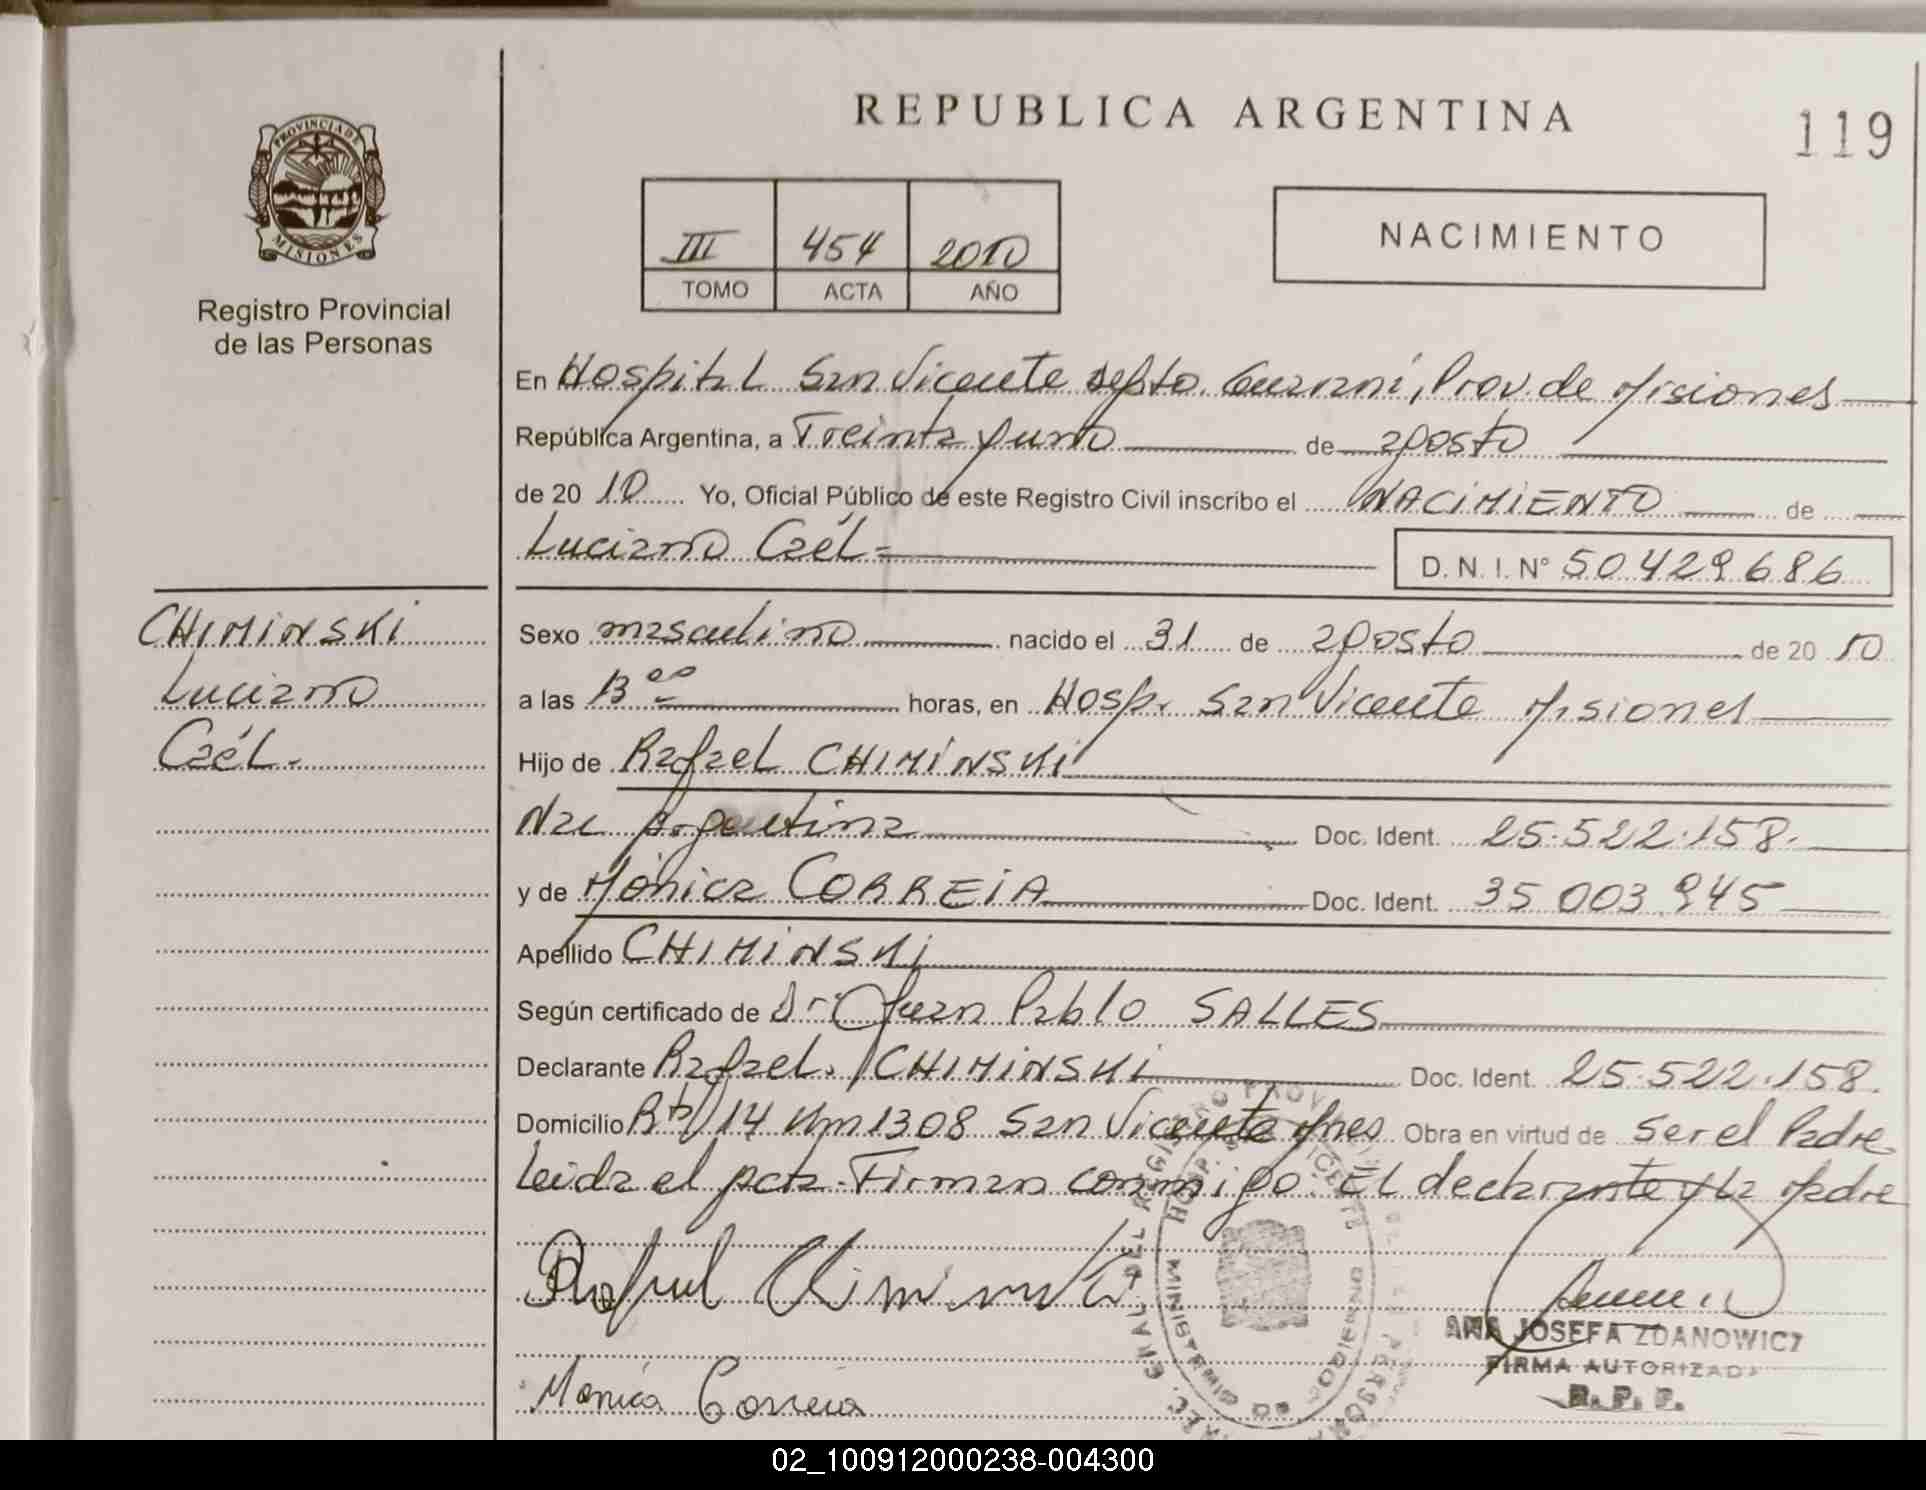 REPUBLICA ARGENTINA
119
PROVINCIA DE
MISIONES
Registro Provincial
de las Personas
III 454 2010
TOMO ACTA AÑO
NACIMIENTO
En Hospital San Vicente depto. Guarani, Prov. de Misiones
República Argentina, a Treinta y uno de agosto
de 20 10 Yo, Oficial Público de este Registro Civil inscribo el NACIMIENTO de
Luciano Caél =
D. N. I. Nº 50429686
CHIMINSKI
Luciano
Caél.
Sexo masculino nacido el 31 de agosto de 20 10
a las 13 00 horas, en Hosp. San Vicente Misiones
Hijo de Rafael CHIMINSKI
Nac Argentina Doc. Ident. 25.522.158.
y de Mónica CORREIA Doc. Ident. 35 003 945
Apellido CHIMINSKI
Según certificado de Dr. Juan Pablo SALLES
Declarante Rafael. CHIMINSKI Doc. Ident. 25.522.158.
Domicilio Rta 14 Km 1308 San Vicente Mnes Obra en virtud de ser el Padre
Leida el acta. Firman conmigo. El declarante y la Madre
Rafael Chiminski
Monica Correia
ANA JOSEFA ZDANOWICZ
FIRMA AUTORIZADA
R. P. P.
02_100912000238-004300